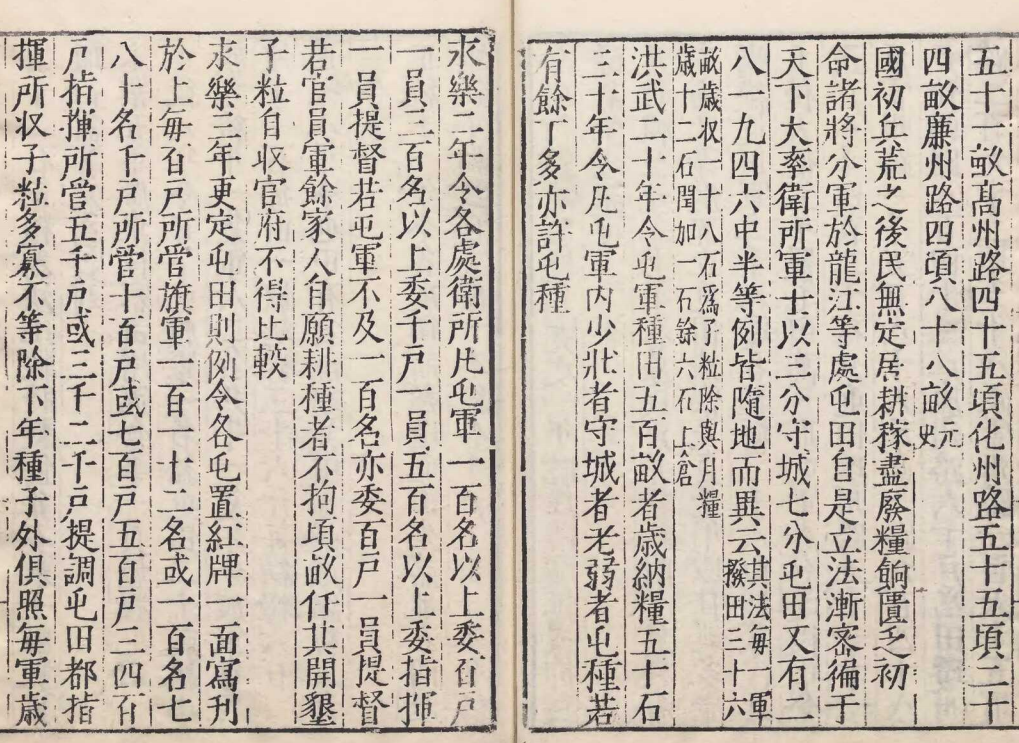 五十一畝高州路四十五頃化州路五十五頃二十
四畝廉州路四頃八十八畝元史
國初兵荒之後民無定居耕稼盡廢糧餉匱乏初
命諸將分軍於龍江等處屯田自是立法漸密徧于
天下大率衛所軍士以三分守城七分屯田又有二
八一九四六中半等例皆隨地而異云其法每一軍撥田三十六
畝歲收一十八石爲子粒除與月糧
歲十二石閏加一石餘六石上倉
洪武二十年令屯軍種田五百畝者歲納糧五十石
三十年令凡屯軍内少壯者守城老弱者屯種若
有餘丁多亦許屯種
永樂二年令各處衛所凡屯軍一百名以上委百戶
一員三百名以上委千戶一員五百名以上委指揮
一員提督若屯軍不及一百名亦委百戶一員提督
若官員軍餘家人自願耕種者不拘頃畝任其開墾
子粒自収官府不得比較
永樂三年更定屯田則例令各屯置紅牌一面寫刊
於上每百戶所管旗軍一百一十二名或一百名七
八十名千戶所管十百戶或七百戶五百戶三四百
戶指揮所管五千戶或三千二千戶提調屯田都指
揮所収子粒多寡不等除下年種子外俱照每軍歲